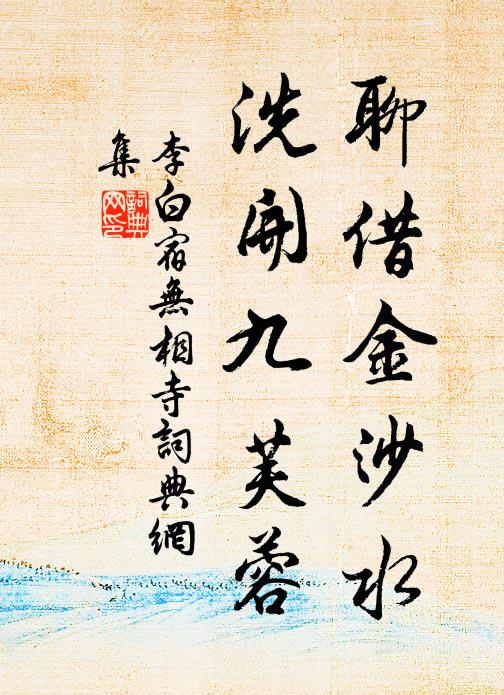 聊借金沙水
洗開九芙蓉
李白宿無相寺詞典網
集
詞典網印